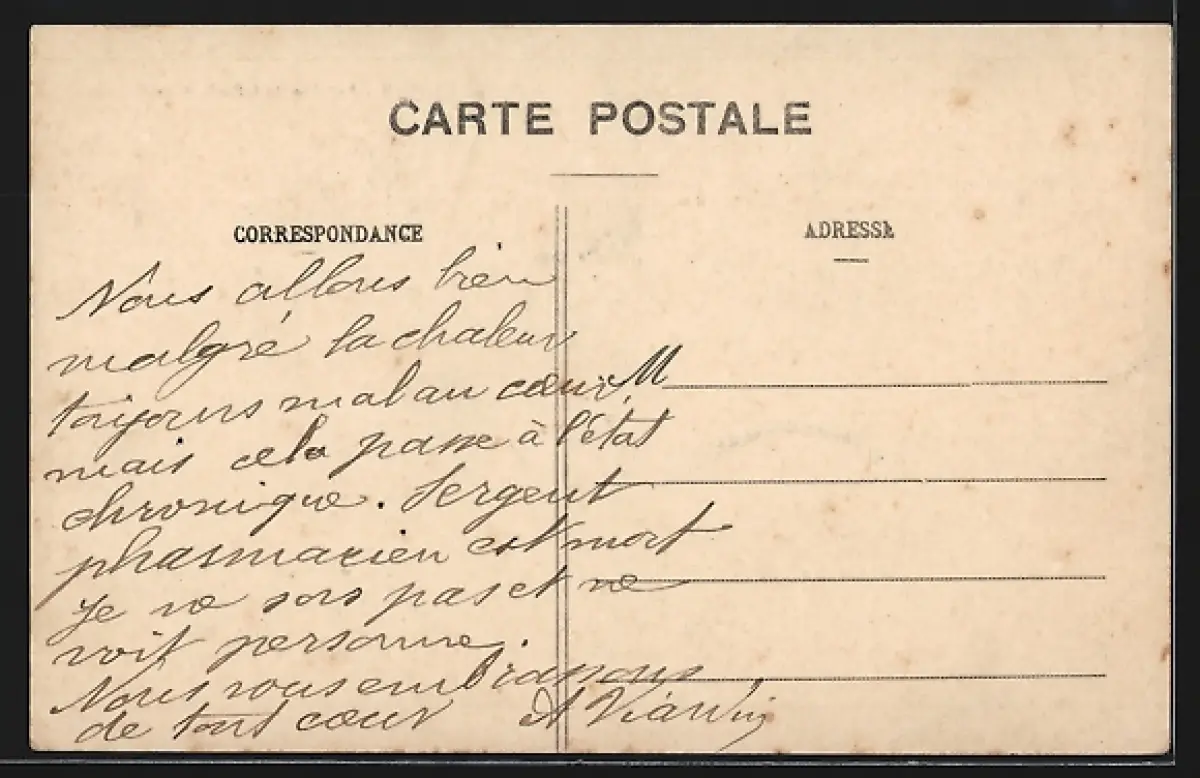 CARTE POSTALE
CORRESPONDANCE
ADRESSE
Nous allons bien
malgré la chaleur
toujours mal au cœur
M
mais cela passe à l'état
chronique. Sergent
pharmacien est mort
Je ne sors pas et ne
voit personne.
Nous vous embrassons
de tout cœur A